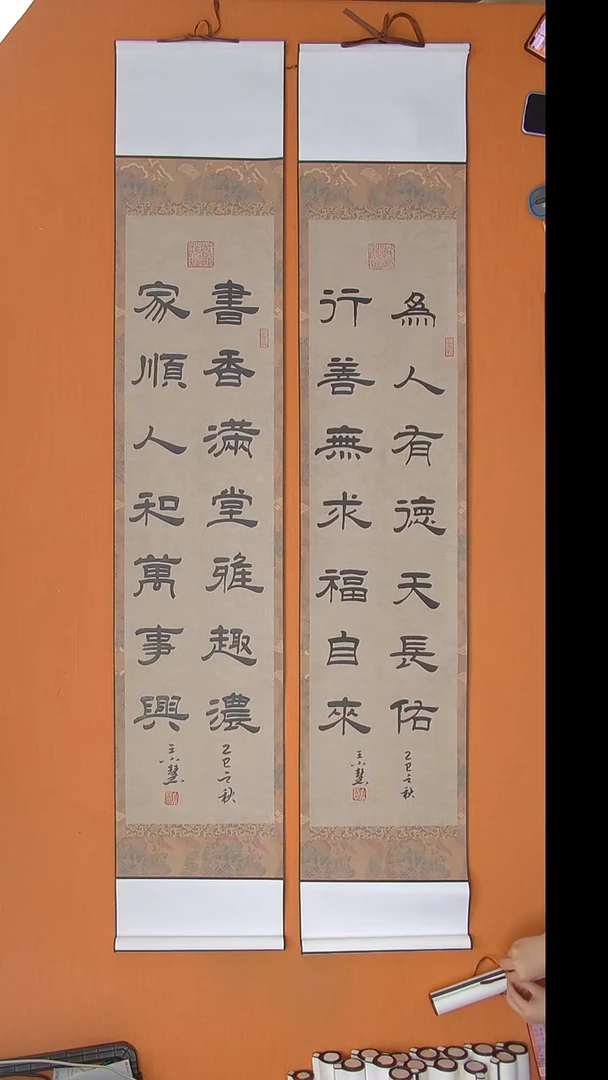 為人有德天長佑
行善無求福自來
乙巳之秋
書香滿堂雅趣濃
家順人和萬事興
乙巳之秋